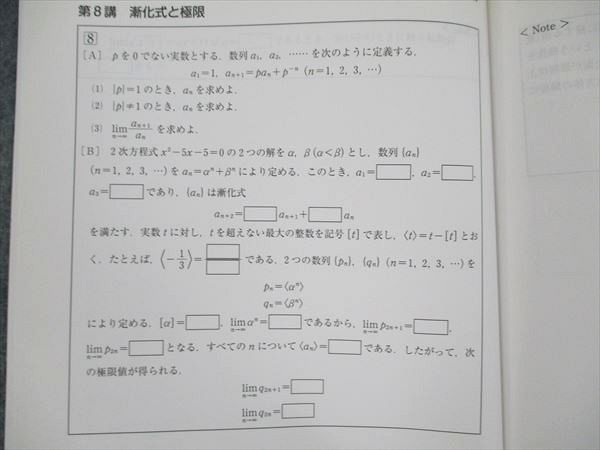 第8講 漸化式と極限
< Note >
8
[A] pを0でない実数とする．数列 a₁, a₂, …… を次のように定義する．
a₁=1, aₙ₊₁=paₙ+p⁻ⁿ (n=1, 2, 3, …)
(1) |p|=1 のとき，aₙ を求めよ．
(2) |p|≠1 のとき，aₙ を求めよ．
(3) lim_{n→∞} aₙ₊₁/aₙ を求めよ．
[B] 2次方程式 x²−5x−5=0 の2つの解を α, β(α<β) とし，数列 {aₙ}
(n=1, 2, 3, …) を aₙ=αⁿ+βⁿ により定める．このとき，a₁=□，a₂=□，
a₃=□ であり，{aₙ} は漸化式
aₙ₊₂=□ aₙ₊₁+□ aₙ
を満たす．実数 t に対し，t を超えない最大の整数を記号 [t] で表し，⟨t⟩=t−[t] とお
く．たとえば，⟨−1/3⟩=□/□ である．2つの数列 {pₙ}, {qₙ} (n=1, 2, 3, …) を
pₙ=⟨αⁿ⟩
qₙ=⟨βⁿ⟩
により定める．[α]=□，lim_{n→∞} αⁿ=□ であるから，lim_{n→∞} p₂ₙ₊₁=□，
lim_{n→∞} p₂ₙ=□ となる．すべての n について ⟨aₙ⟩=□ である．したがって，次
の極限値が得られる．
lim_{n→∞} q₂ₙ₊₁=□
lim_{n→∞} q₂ₙ=□